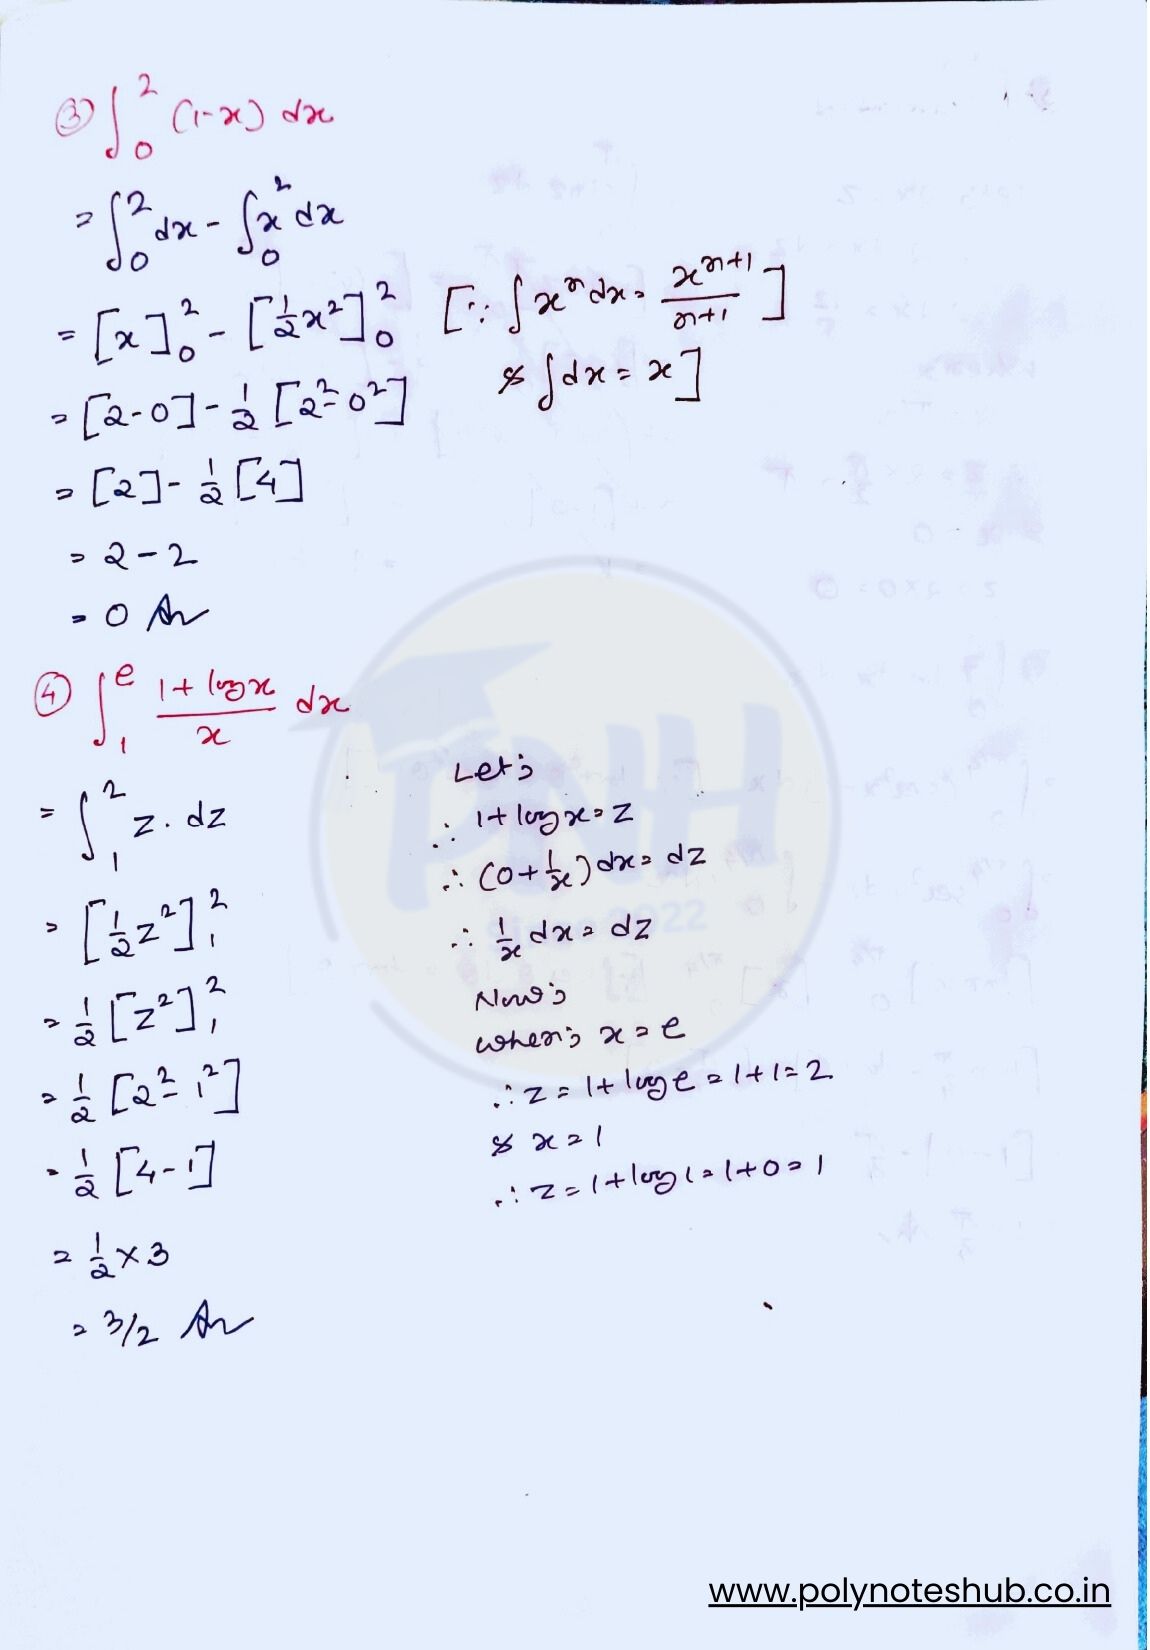 ③ ∫₀² (1-x) dx
= ∫₀² dx - ∫₀² x dx
= [x]₀² - [½x²]₀² [∵ ∫xⁿ dx = xⁿ⁺¹/(n+1)]
= [2-0] - ½ [2² - 0²] & ∫dx = x]
= [2] - ½ [4]
= 2 - 2
= 0 Ans
④ ∫₁ᵉ (1 + log x)/x dx
= ∫₁² z . dz
= [½z²]₁²
= ½ [z²]₁²
= ½ [2² - 1²]
= ½ [4 - 1]
= ½ × 3
= 3/2 Ans
Let,
∴ 1 + log x = z
∴ (0 + 1/x) dx = dz
∴ 1/x dx = dz
Now,
when, x = e
∴ z = 1 + log e = 1 + 1 = 2
& x = 1
∴ z = 1 + log 1 = 1 + 0 = 1
PNH
Since 2022
www.polynoteshub.co.in